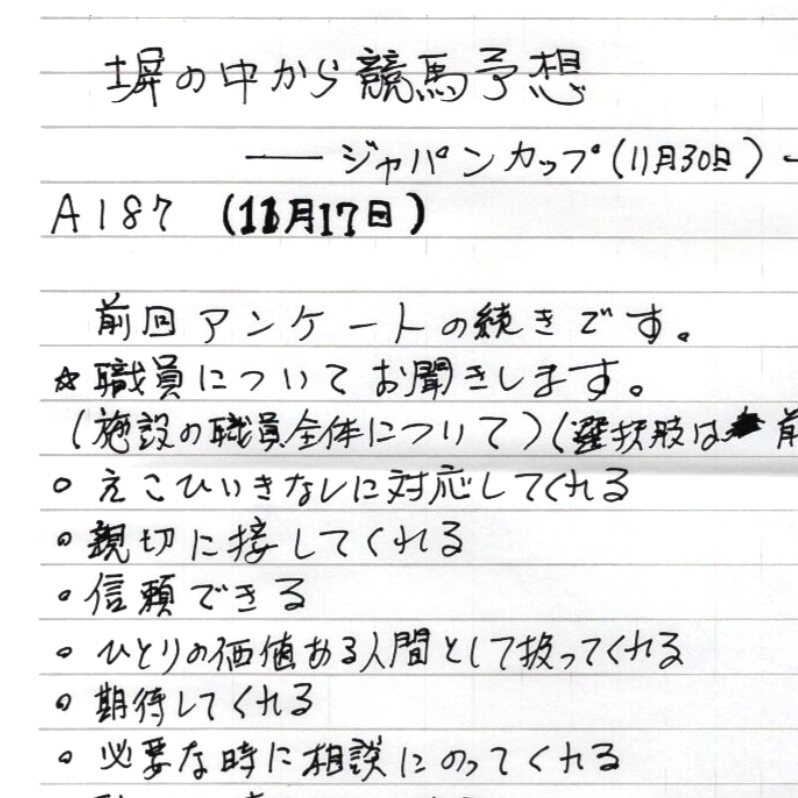 塀の中から競馬予想
── ジャパンカップ(11月30日) -
A187 (11月17日)
前回アンケートの続きです。
☆職員についてお聞きします。
(施設の職員全体について)(選択肢は 前
○ えこひいきなしに対応してくれる
○ 親切に接してくれる
○ 信頼できる
○ ひとりの価値ある人間として扱ってくれる
○ 期待してくれる
○ 必要な時に相談にのってくれる